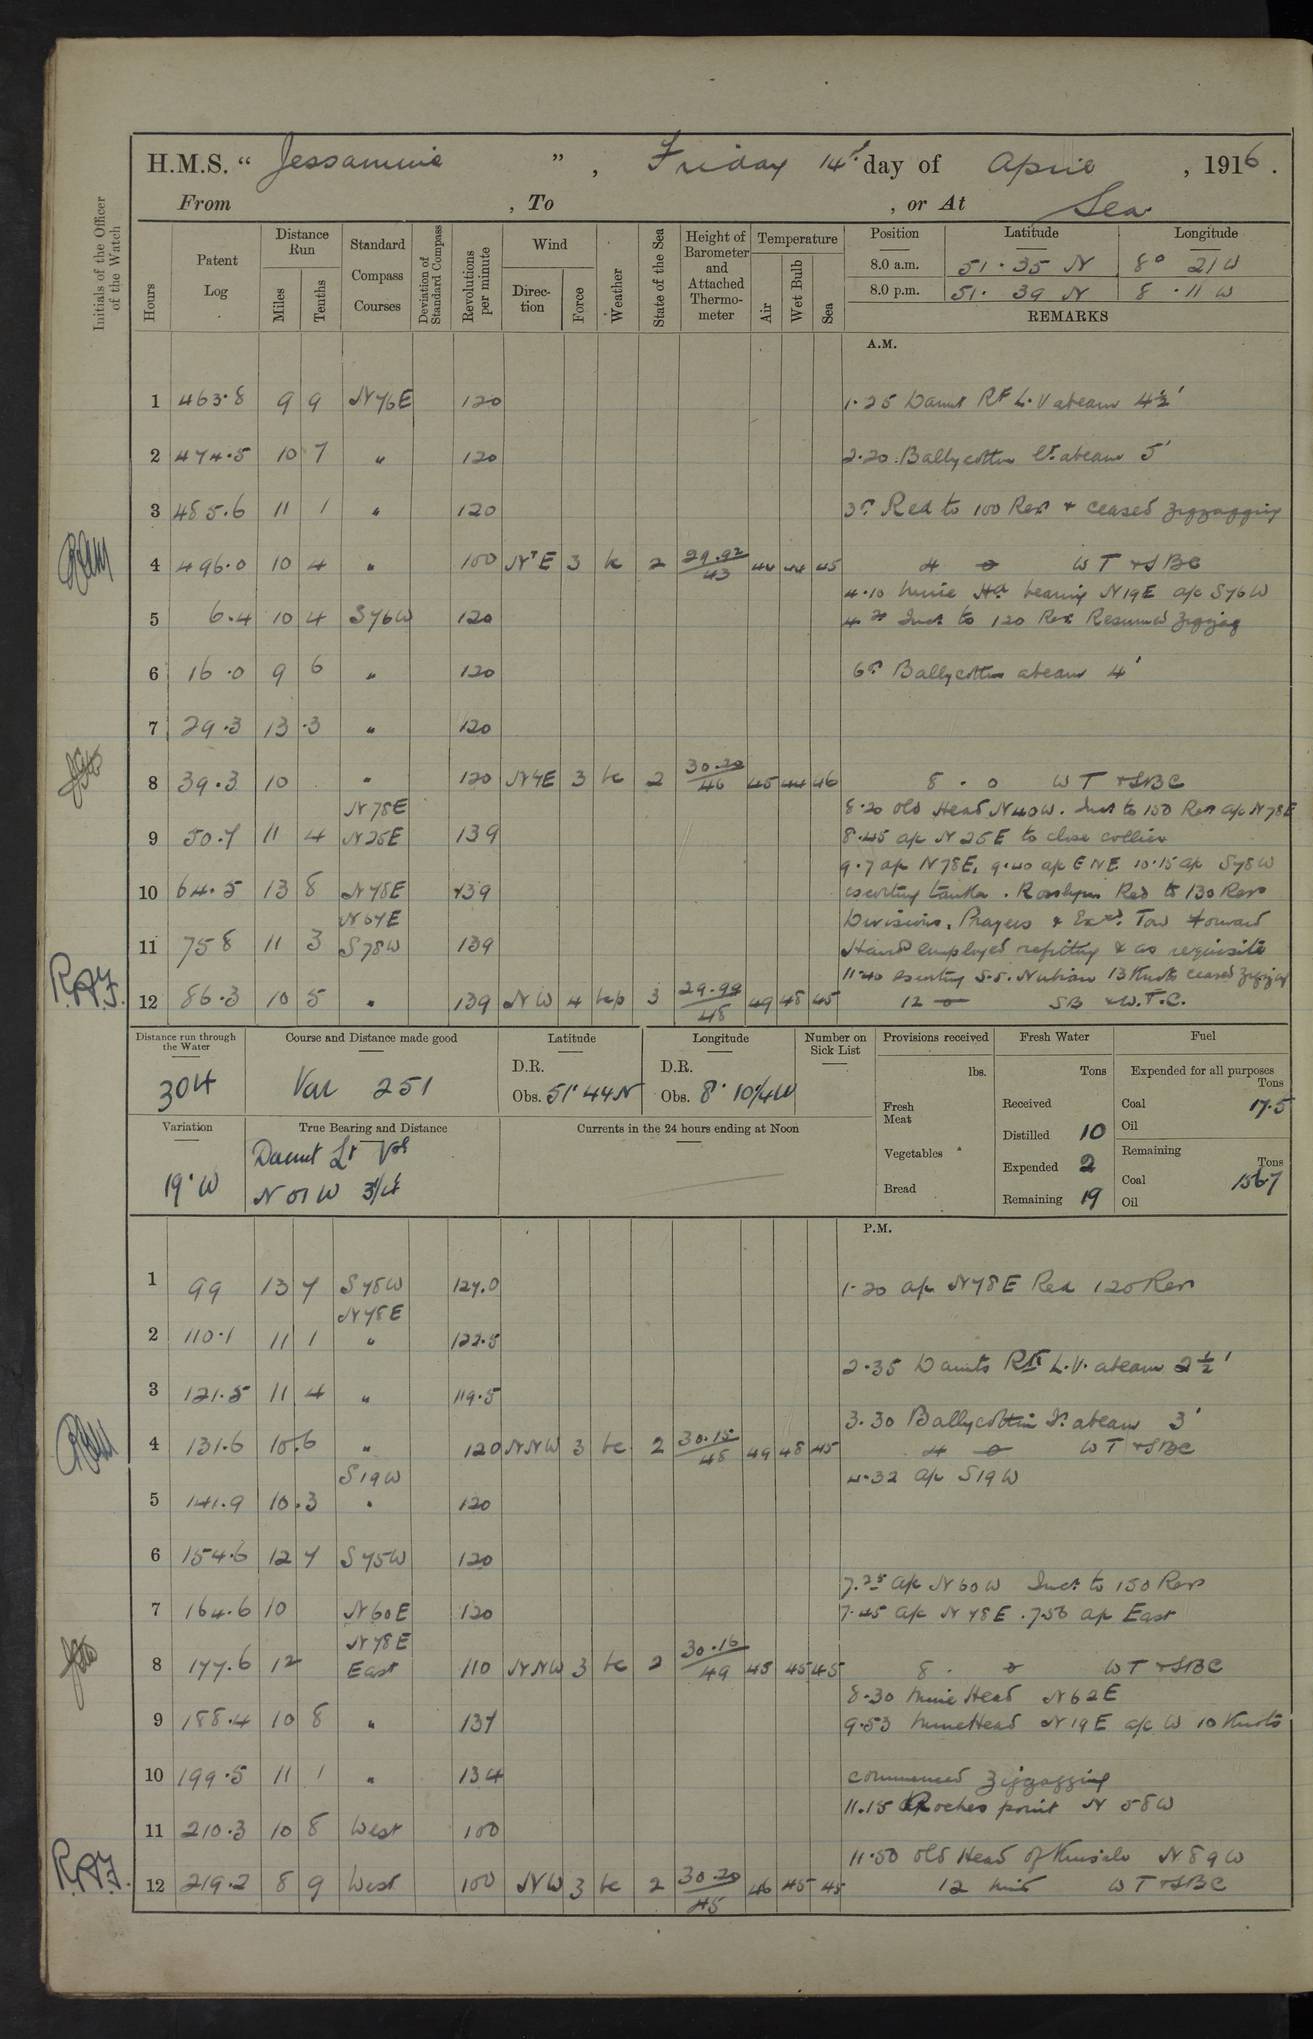 H.M.S. “ Jessamine ” , Friday 14th day of April , 1916 .
From , To , or At Sea
Initials of the Officer of the Watch
Hours
Patent Log
Distance Run
Miles
Tenths
Standard Compass Courses
Deviation of Standard Compass
Revolutions per minute
Wind
Direction
Force
Weather
State of the Sea
Height of Barometer and Attached Thermometer
Temperature
Air
Wet Bulb
Sea
Position Latitude Longitude
8.0 a.m. 51 . 35 N 8° 21 W
8.0 p.m. 51 . 39 N 8 . 11 W
REMARKS
A.M.
1 463.8 9 9 N76E 120 1.25 Daunt Rk L.V abeam 4½'
2 474.5 10 7 " 120 2.20 Ballycotton Lt. abeam 5'
3 485.6 11 1 " 120 Red to 100 Revs + ceased zigzagging
4 496.0 10 4 " 100 N'E 3 bc 2 29.92/43 44 44 45 4 0 WT + SBC
4.10 Mine Hd bearing N19E a/c S76W
5 6.4 10 4 S76W 120 Incd to 120 Revs Resumed zigzag
6 16.0 9 6 " 120 Ballycotton abeam 4'
7 29.3 13 .3 " 120
8 39.3 10 " 120 N4E 3 bc 2 30.20/46 45 44 46 8 . 0 WT + SBC
N78E 8.20 Old Head N40W. Incd to 150 Revs a/c N78E
9 50.7 11 4 N25E 139 8.45 a/c N25E to close collier
9.7 a/c N78E, 9.40 a/c ENE 10.15 a/c S78W
10 64.5 13 8 N78E 139 escorting tanker . Rosslyn Red to 130 Revs
N67E Divisions, Prayers & Exd. Tow forward
11 75 8 11 3 S78W 139 Hands employed refitting & as requisite
11.40 escorting S.S. Nubian 13 Knots ceased zigzag
R.A.F. 12 86.3 10 5 " 139 NW 4 bcp 3 29.99/48 49 48 45 12 0 SB & W.T.C.
Distance run through the Water
304
Course and Distance made good
Var 251
Latitude
D.R.
Obs. 51° 44 N
Longitude
D.R.
Obs. 8° 10¼ W
Number on Sick List
Provisions received
lbs.
Fresh Meat
Vegetables
Bread
Fresh Water
Tons
Received
Distilled 10
Expended 2
Remaining 19
Fuel
Expended for all purposes
Tons
Coal 17.5
Oil
Remaining
Tons
Coal 156.7
Oil
Variation
19° W
True Bearing and Distance
Daunt Lt Vsl
N 01 W 3¼
Currents in the 24 hours ending at Noon
P.M.
1 99 13 7 S78W 127.0 1.20 a/c N78E Red 120 Revs
N78E
2 110.1 11 1 " 122.5
2.35 Daunts Rk L.V. abeam 2½'
3 121.5 11 4 " 119.5
3.30 Ballycottin Lt. abeam 3'
4 131.6 10.6 " 120 NNW 3 bc 2 30.15/48 49 48 45 4 0 WT + SBC
S19W 4.32 a/c S19W
5 141.9 10.3 " 120
6 154.6 12 7 S75W 120
7.25 a/c N60W Incd to 150 Revs
7 164.6 10 N60E 120 7.45 a/c N78E . 7.50 a/c East
N78E
8 177.6 12 East 110 NNW 3 bc 2 30.16/49 45 45 45 8 . 0 WT + SBC
8.30 Mine Head N62E
9 188.4 10 8 " 137 9.53 Mine Head N19E a/c W 10 Knots
10 199.5 11 1 " 134 commenced zigzagging
11.15 Roches point N 58W
11 210.3 10 8 West 100
11.50 Old Head of Kinsale N89W
R.A.F. 12 219.2 8 9 West 100 NW 3 bc 2 30.20/45 46 45 45 12 mid WT + SBC